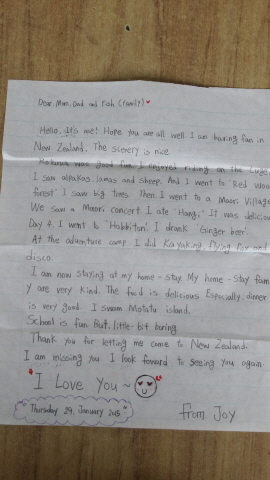 Dear. Mom, Dad and Fish (family)
Hello. It's me! Hope you are all well. I am having fun in
New Zealand. The scenery is nice.
Rotorua was good fun. I enjoyed riding on the Luge.
I saw alpakas, lamas and sheep. And I went to 'Red Wood
forest' I saw big trees. Then I went to a Maori Village
We saw a Maori concert. I ate 'Hangi.' It was delicious
Day 4. I went to 'Hobbiton'. I drank 'Ginger beer'.
At the adventure camp I did Kayaking, flying fox and
disco.
I am now staying at my home-stay. My home-stay fam
y are very kind. The food is delicious. Especially, dinner
is very good. I swam Motutu island.
School is fun. But, little-bit boring.
Thank you for letting me come to New Zealand.
I am missing you. I look foward to seeing you again.
I Love You ~
Thursday 29, January 2015
from. Joy